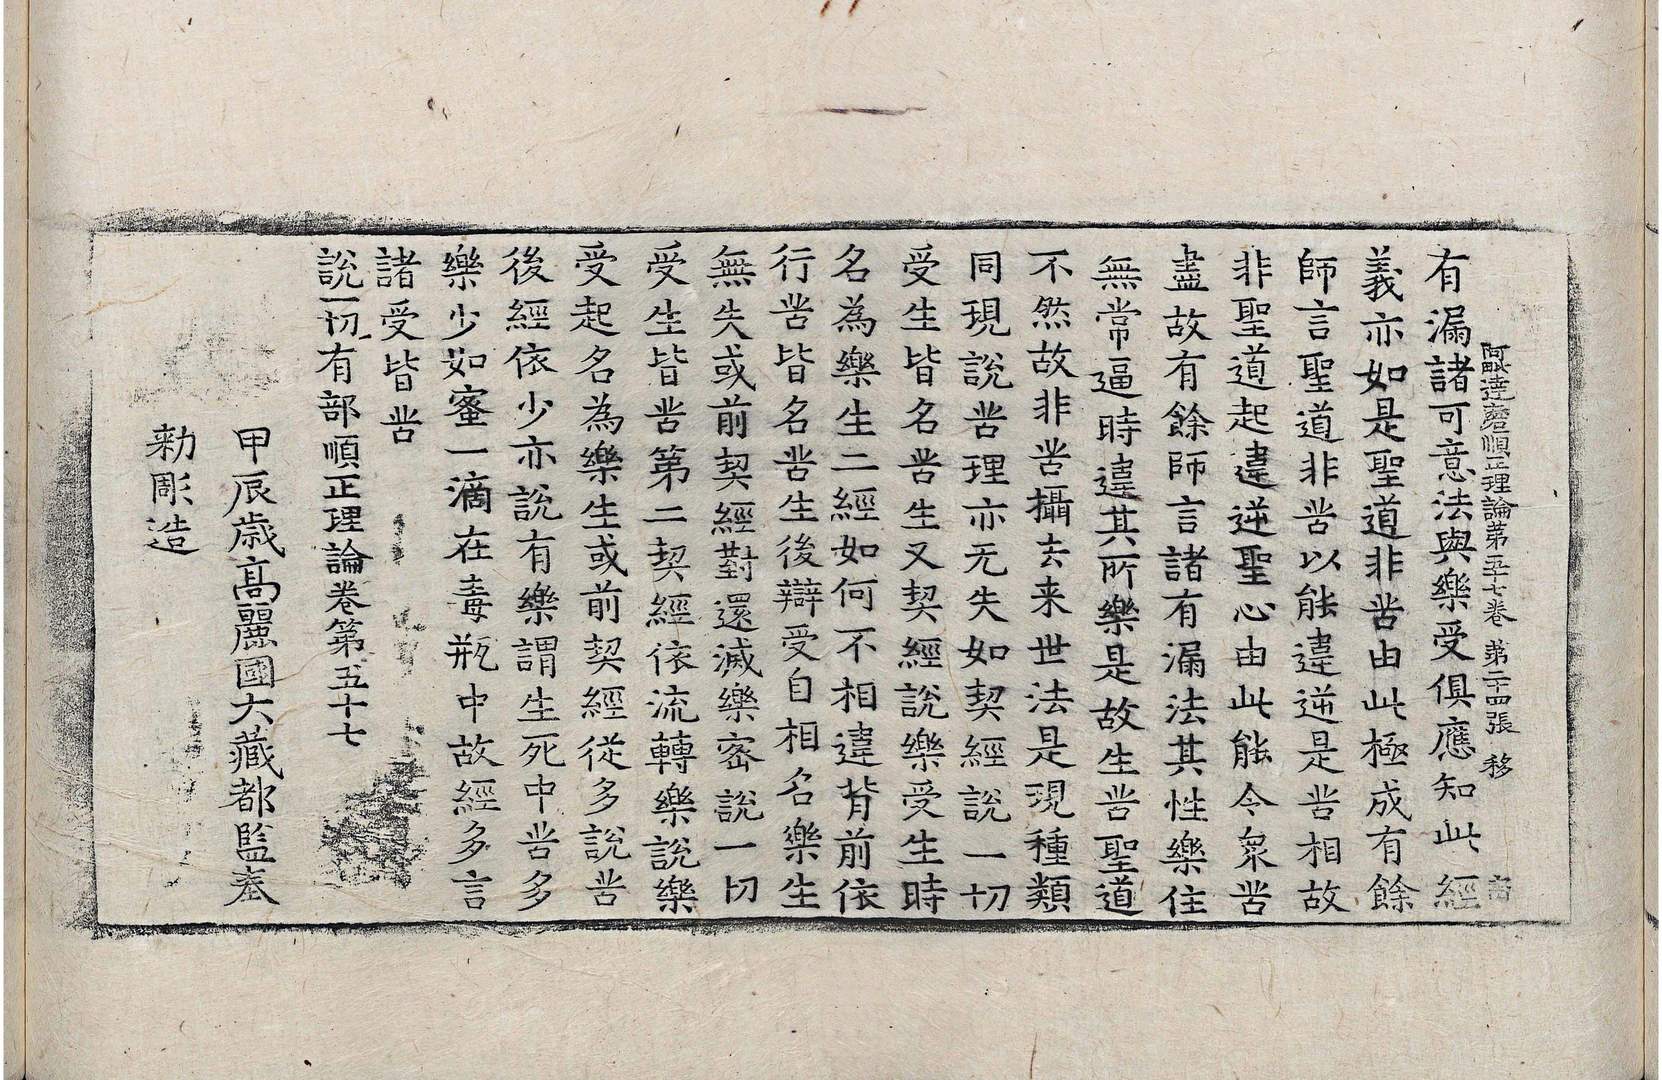 阿毗達磨順正理論第五十七卷 第二十四張 移
有漏諸可意法與樂受俱應知此經
義亦如是聖道非苦由此極成有餘
師言聖道非苦以能違逆是苦相故
非聖道起違逆聖心由此能令衆苦
盡故有餘師言諸有漏法其性樂住
無常逼時違其所樂是故生苦聖道
不然故非苦攝去来世法是現種類
同現說苦理亦无失如契經說一切
受生皆名苦生又契經說樂受生時
名為樂生二經如何不相違背前依
行苦皆名苦生後辯受自相名樂生
無失或前契經對還滅樂密說一切
受生皆苦第二契經依流轉樂說樂
受起名為樂生或前契經從多說苦
後經依少亦說有樂謂生死中苦多
樂少如蜜一滴在毒瓶中故經多言
諸受皆苦
說一切有部順正理論卷第五十七
甲辰歲高麗國大藏都監奉
勑彫造